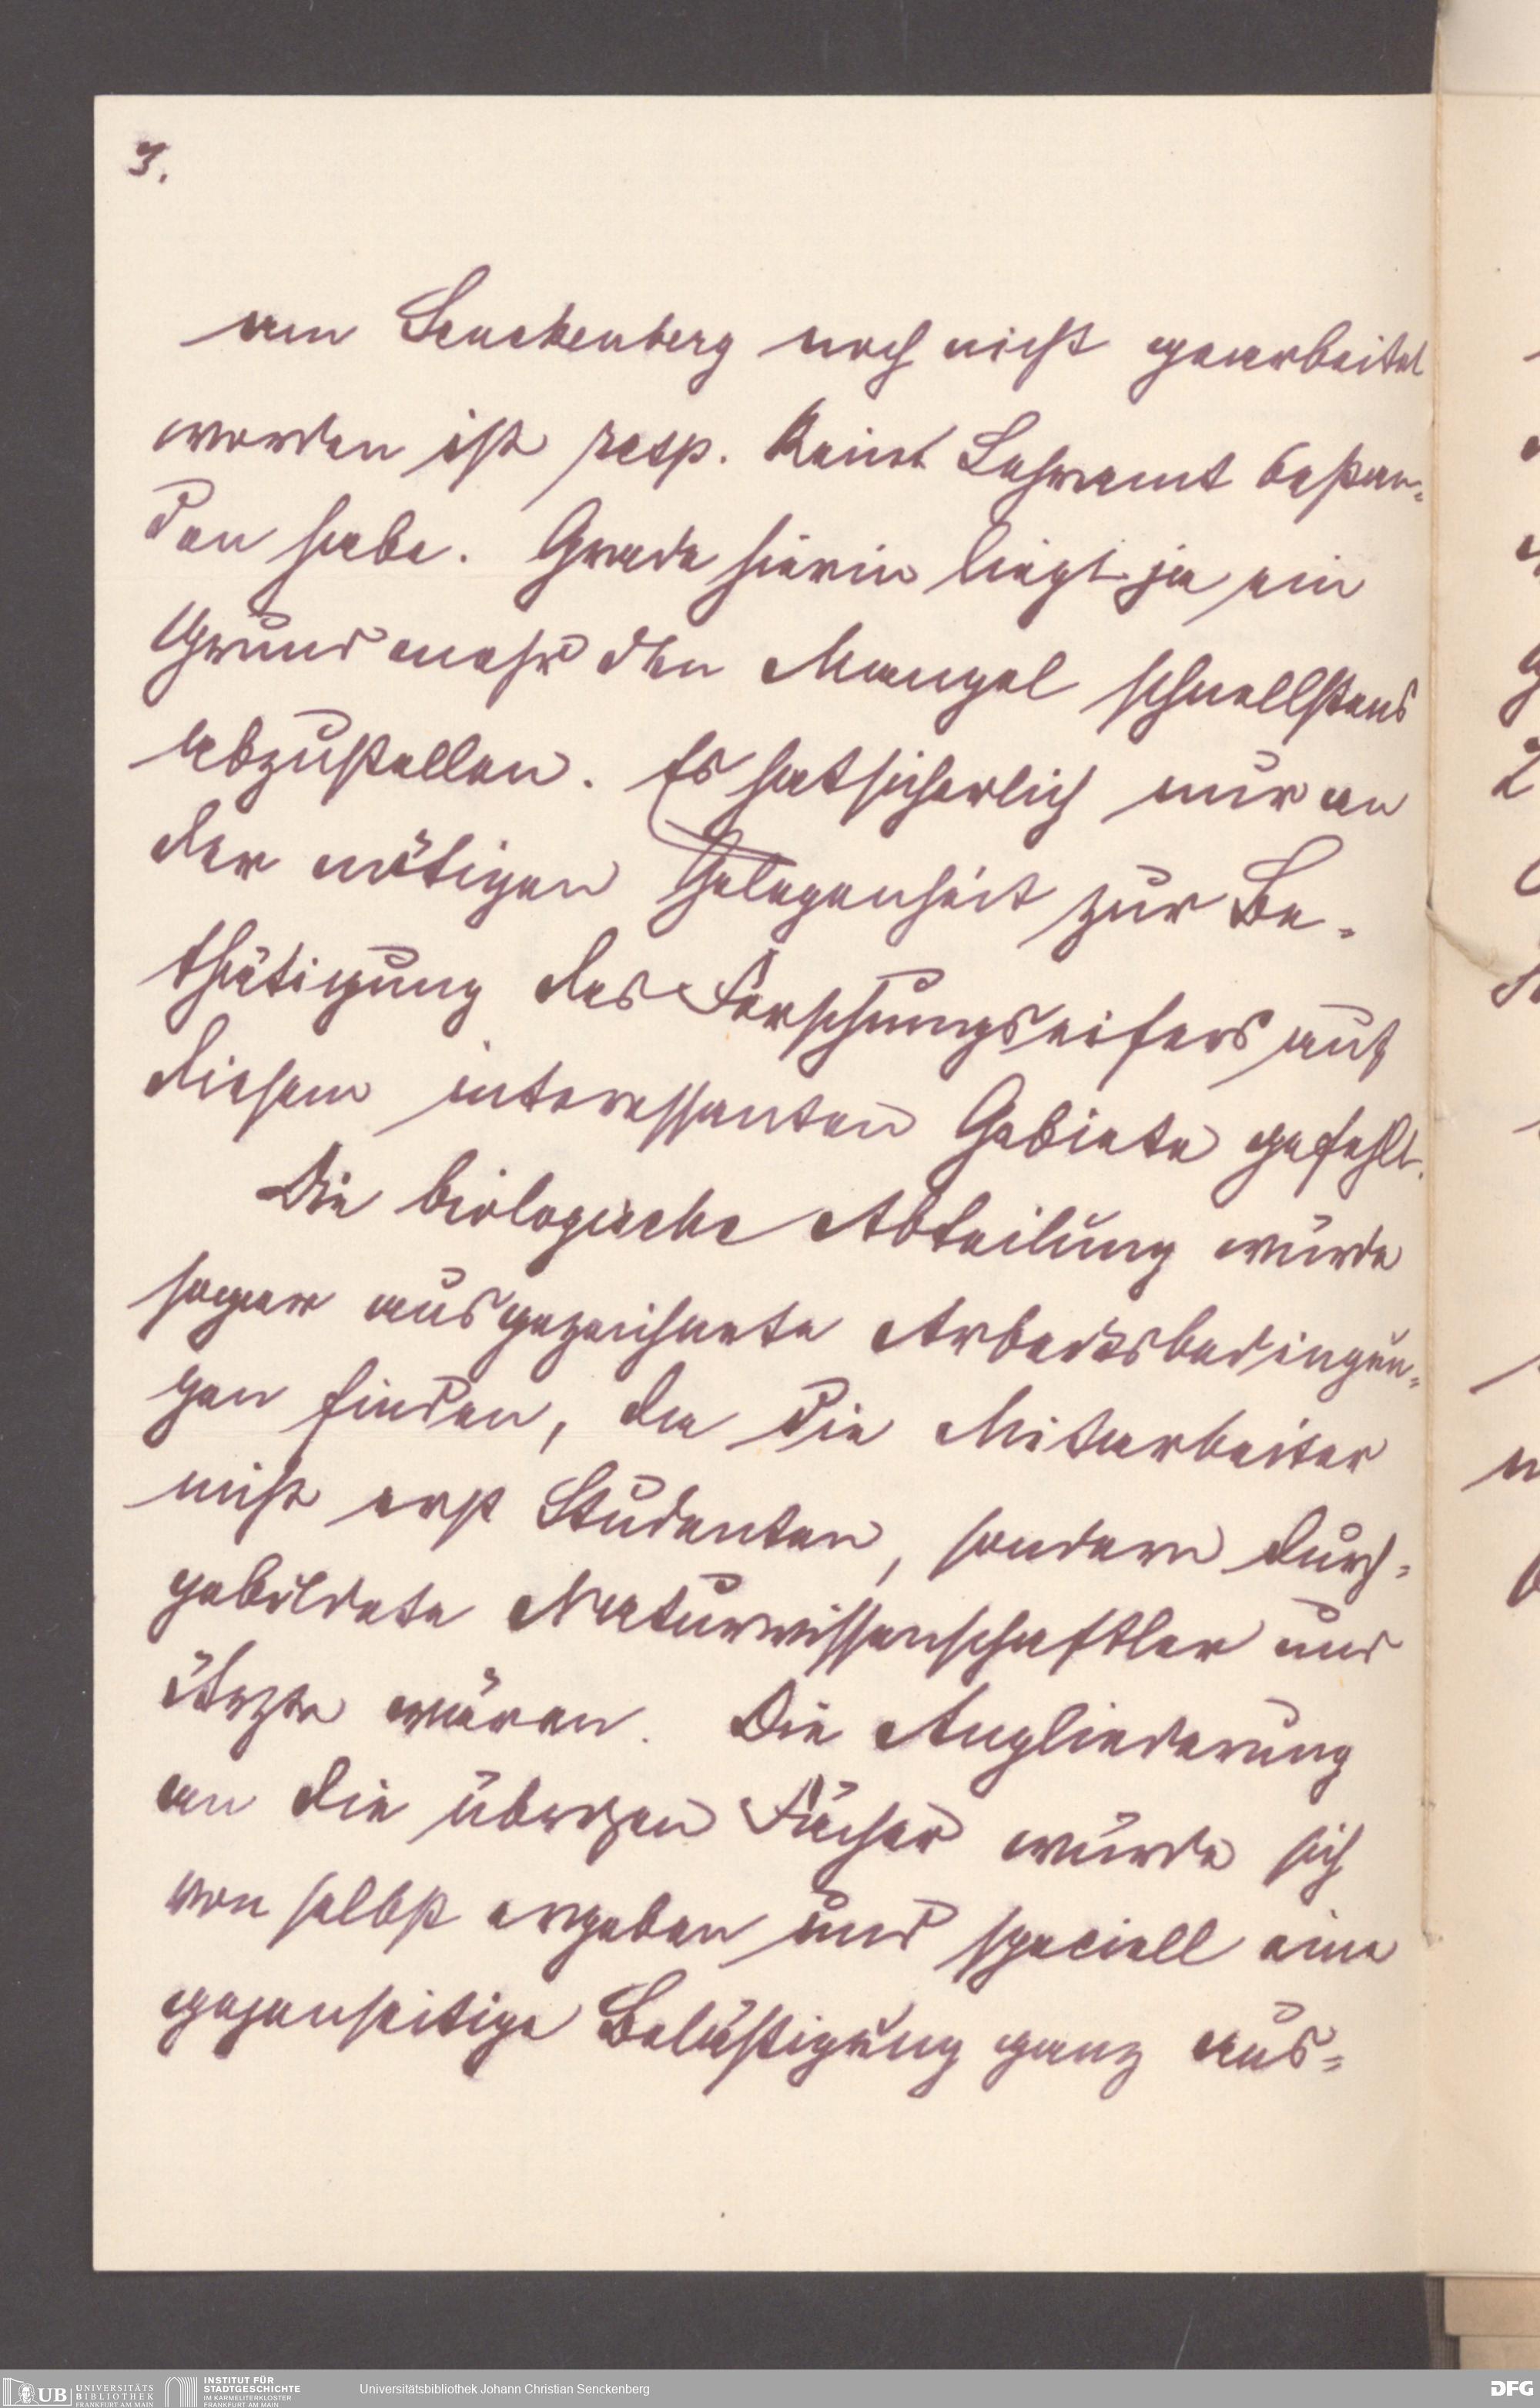 3.
am Senckenberg noch nicht gearbeitet
worden ist resp. kein Lehramt bestan-
den habe. Grade hierin liegt ja ein
Grund mehr den Mangel schnellstens
abzustellen. Es hat sicherlich nur an
der nötigen Gelegenheit zur Be-
thätigung des Forschungseifers auf
diesem interessanten Gebiete gefehlt.
Die biologische Abteilung würde
sogar ausgezeichnete Arbeitsbedingun-
gen finden, da die Mitarbeiter
nicht erst Studenten, sondern durch-
gebildete Naturwissenschaftler und
Ärzte wären. Die Angliederung
an die übrigen Fächer würde sich
von selbst ergeben und speciell eine
gegenseitige Belästigung ganz aus-
UB UNIVERSITÄTS
BIBLIOTHEK
FRANKFURT AM MAIN
INSTITUT FÜR
STADTGESCHICHTE
IM KARMELITERKLOSTER
FRANKFURT AM MAIN
Universitätsbibliothek Johann Christian Senckenberg
DFG